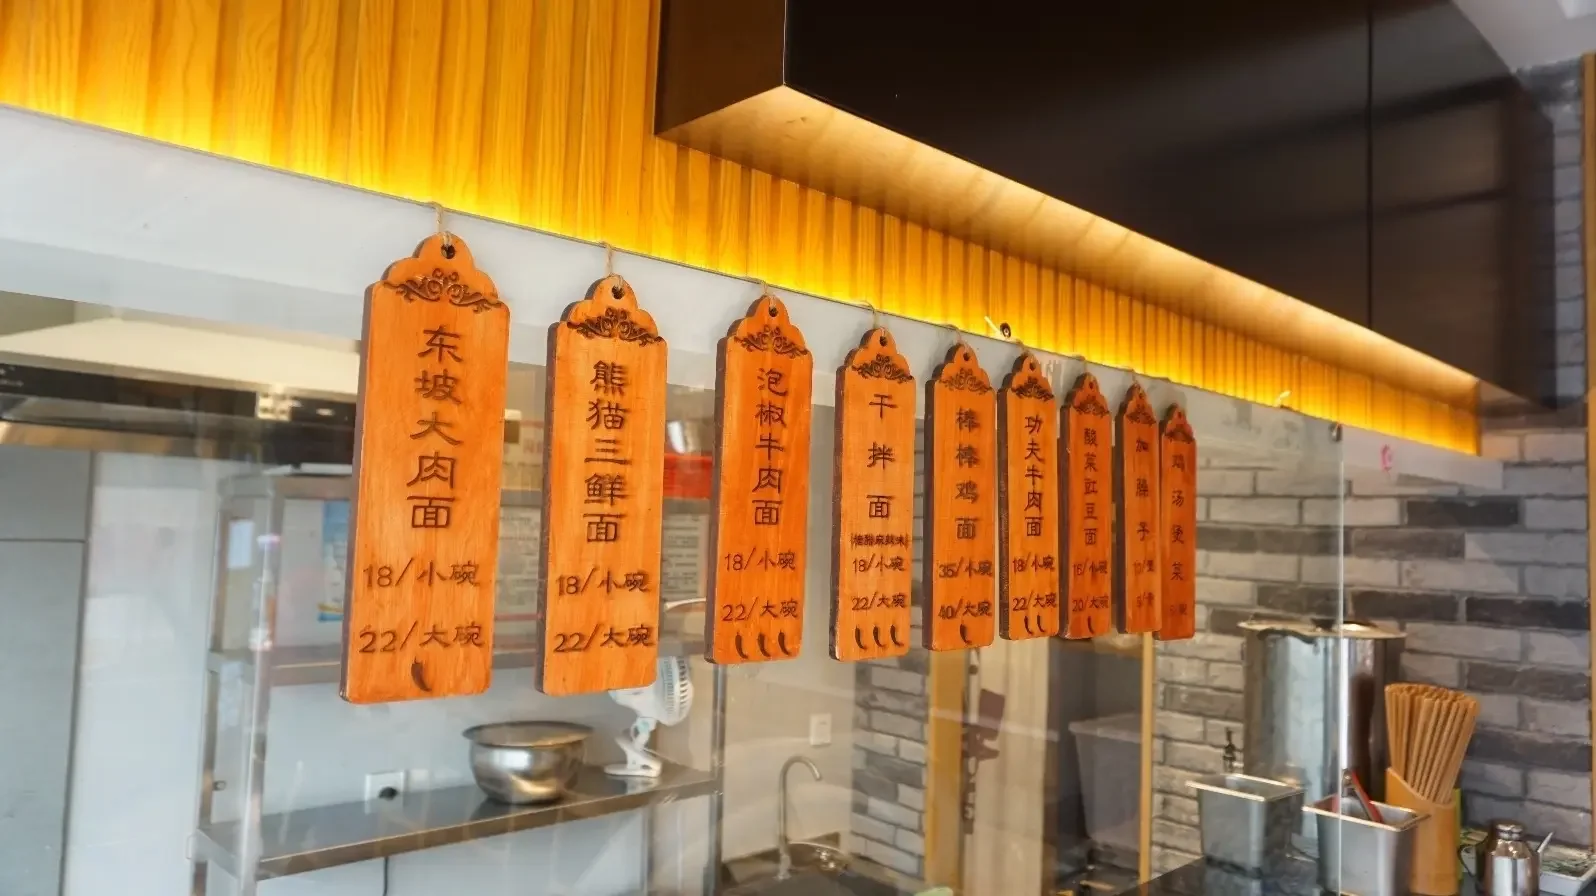 东坡大肉面
18/小碗
22/大碗
熊猫三鲜面
18/小碗
22/大碗
泡椒牛肉面
18/小碗
22/大碗
干拌面
18/小碗
22/大碗
棒棒鸡面
35/小碗
40/大碗
功夫牛肉面
18/小碗
22/大碗
酸菜豇豆面
16/小碗
20/大碗
加臊子
鸡汤烫菜